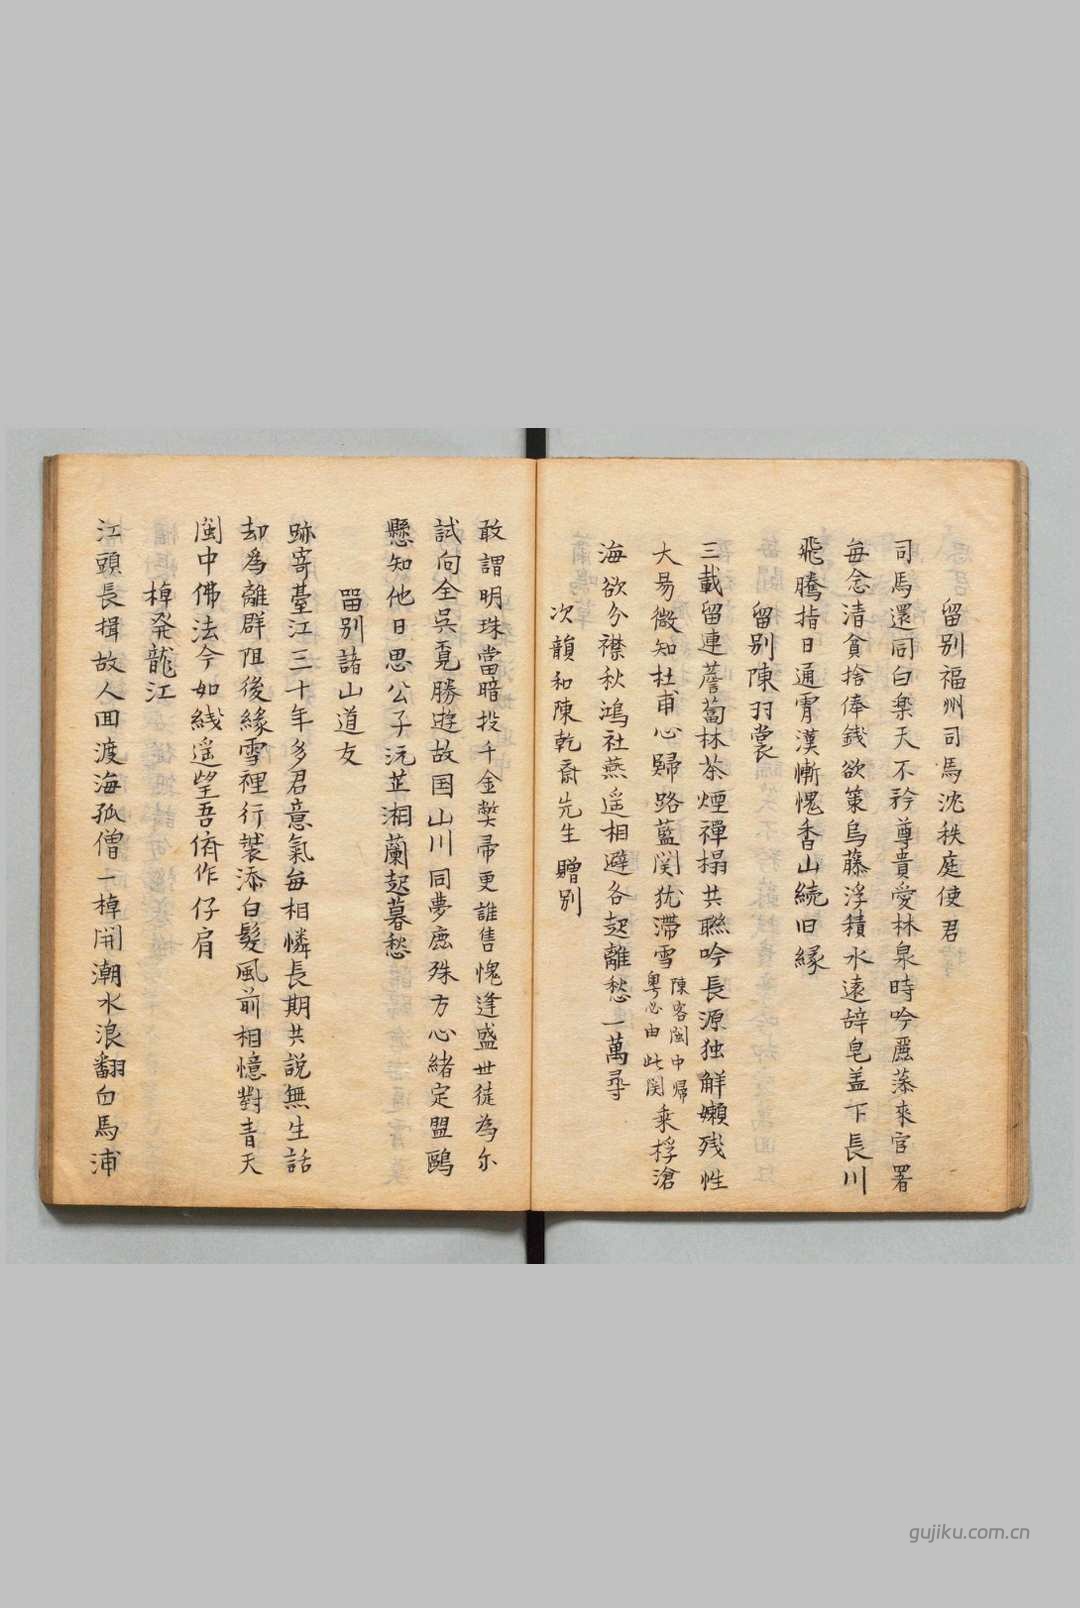 留别福州司馬沈秩庭使君
司馬還同白樂天不矜尊貴愛林泉時吟麗藻來官署
每念清貧捨俸銭欲策烏藤浮積水遠辞皂盖下長川
飛騰指日通霄漢慚愧香山続旧縁
留别陳羽裳
三載留連薝蔔林茶煙禪榻共聯吟長源独觧嬾残性
大易微知杜甫心歸路藍関犹滯雪陳客閩中帰粤必由此関乘桴滄
海欲分襟秋鴻社燕遥相避各起離愁一萬㝷
次韻和陳乾斎先生贈别
敢謂明珠當暗投千金獘帚更誰售愧逢盛世徒為尓
試向全吳覔勝遊故国山川同夢麃殊方心緒定盟鷗
懸知他日思公子沅芷湘蘭起暮愁
畱别諸山道友
跡寄臺江三十年多君意氣每相憐長期共説無生話
却為離群阻後緣雪裡行裝添白髮風前相憶對青天
闽中佛法今如綫遥望吾儕作仔肩
棹発龍江
江頭長揖故人囬渡海孤僧一棹開潮水浪翻白馬浦
gujiku.com.cn